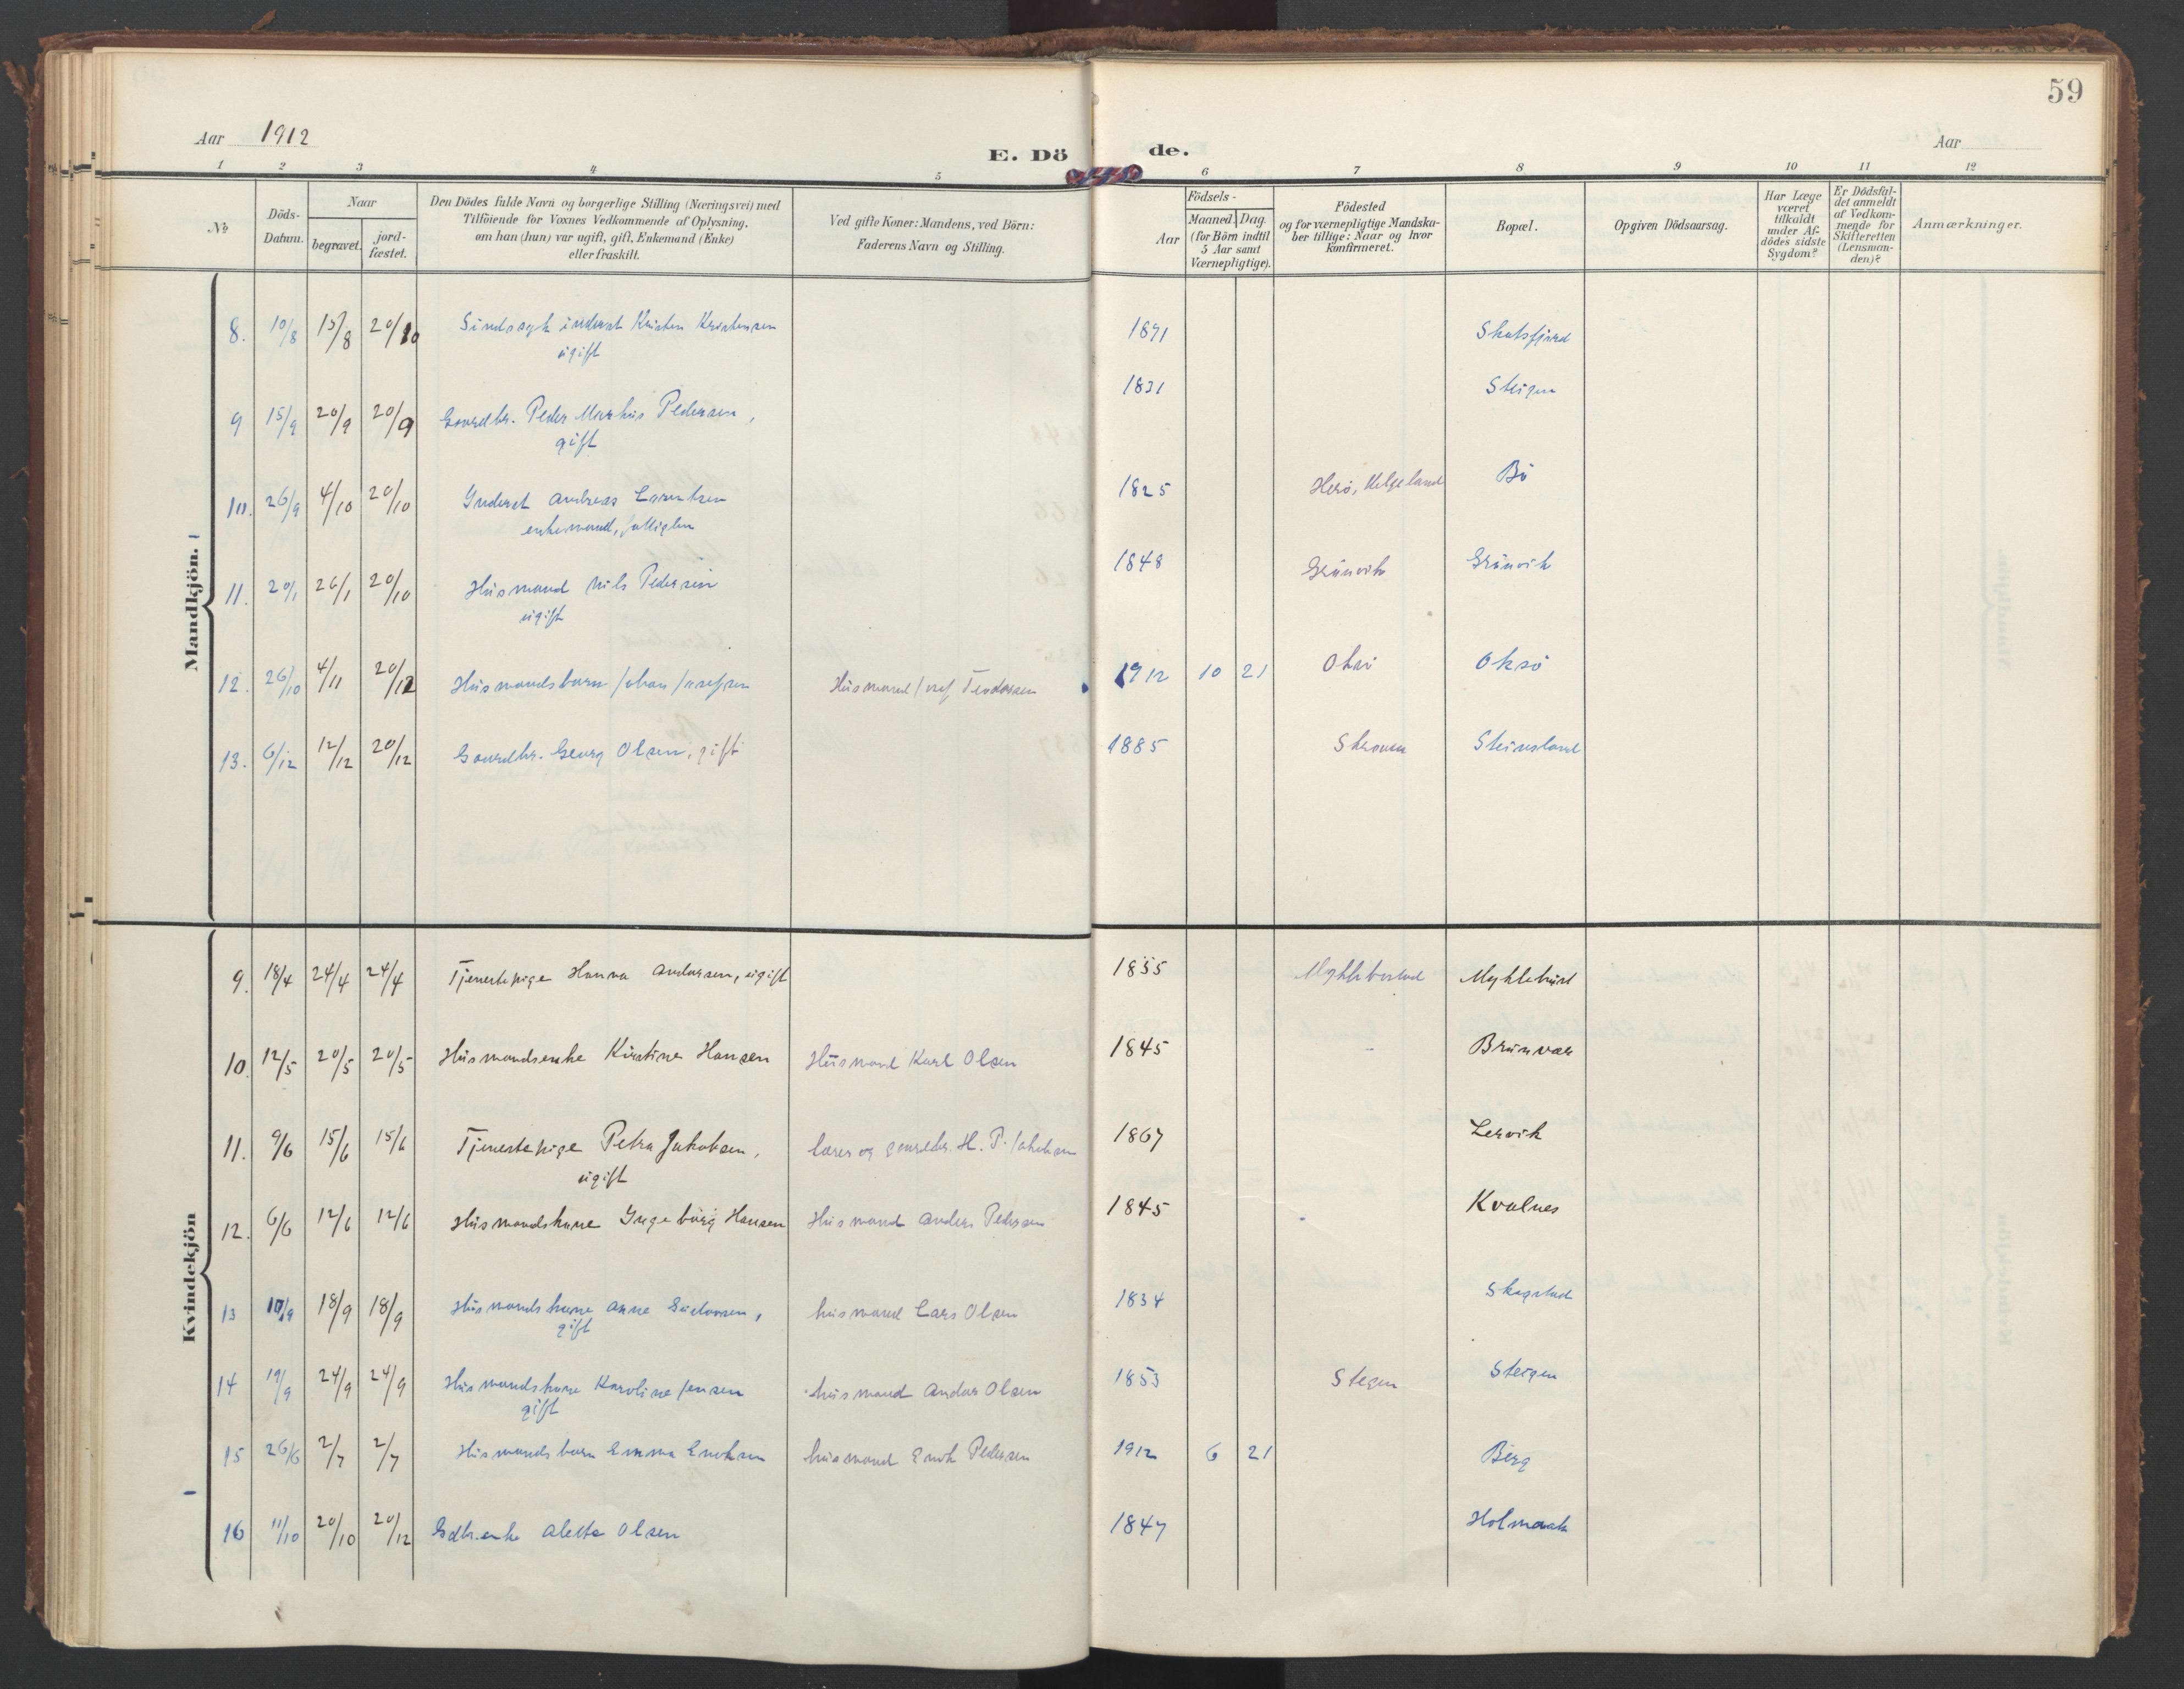 59
Aar 1912
E. Dö
de.
Aar
1 2 3 4 5 6 7 8 9 10 11 12
№
Döds-
Datum.
Naar
begravet.
jord-
fæstet.
Den Dödes fulde Navn og borgerlige Stilling (Næringsvei) med
Tilföiende for Voxnes Vedkommende af Oplysning,
om han (hun) var ugift, gift, Enkemand (Enke)
eller fraskilt.
Ved gifte Koner: Mandens, ved Börn:
Faderens Navn og Stilling.
Födsels-
Aar
Maaned. Dag.
(for Börn indtil
5 Aar samt
Værnepligtige).
Födested
og for værnepligtige Mandska-
ber tillige: Naar og hvor
Konfirmeret.
Bopæl.
Opgiven Dödsaarsag.
Har Læge
været
tilkaldt
under Af-
dödes sidste
Sygdom?
Er Dödsfal-
det anmeldt
af Vedkom-
mende for
Skifteretten
(Lensman-
den)?
Anmærkninger.
Mandkjön.
8. 10/8 15/8 20/10 Sindssyk inderst Kristen Kristensen 1871 Skotsfjord
ugift
9 15/9 20/9 20/9 Gaardbr. Peder Markus Pedersen, 1831 Steigen
gift
10. 26/9 4/10 20/10 Inderst Andreas Lorentsen 1825 Herø, Helgeland Bö
enkemand, fattiglem
11. 20/1 26/1 20/10 Husmand Nils Pedersen 1848 Grünvik Grünvik
ugift
12. 26/10 4/11 20/12 Husmandsbarn Johan Josefsen Husmand Josef Teodorsen 1912 10 21 Oksö
13. 6/12 12/12 20/12 Gaardbr. Georg Olsen, gift 1885 Skroven Steinsland
Kvindekjön
9. 18/4 24/4 24/4 Tjenestepige Hanna Andersen, ugift 1855 Myklebostad Myklebust
10. 12/5 20/5 20/5 Husmandsenke Kirstine Hansen Husmand Karl Olsen 1845 - Brunvær
11. 9/6 15/6 15/6 Tjenestepige Petra Jakobsen, lærer og gaardbr. H. P. Jakobsen 1867 Lervik
ugift
12. 6/6 12/6 12/6 Husmandskone Ingeborg Hansen Husmand Anders Pedersen 1845 Kvalnes
13 10/9 18/9 18/9 Husmandskone Anne husmand Lars Olsen 1834 Skagstad
gift
14 19/9 24/9 24/9 Husmandskone Karoline Jensen husmand Anders Olsen 1853 Stegen Steigen
gift
15 26/6 2/7 2/7 Husmandsbarn Emma Enoksen husmand Enok Pedersen 1912 6 21 Berg
16 11/10 20/10 20/12 Gdbr.enke Aletta Olsen 1847 Holmaak